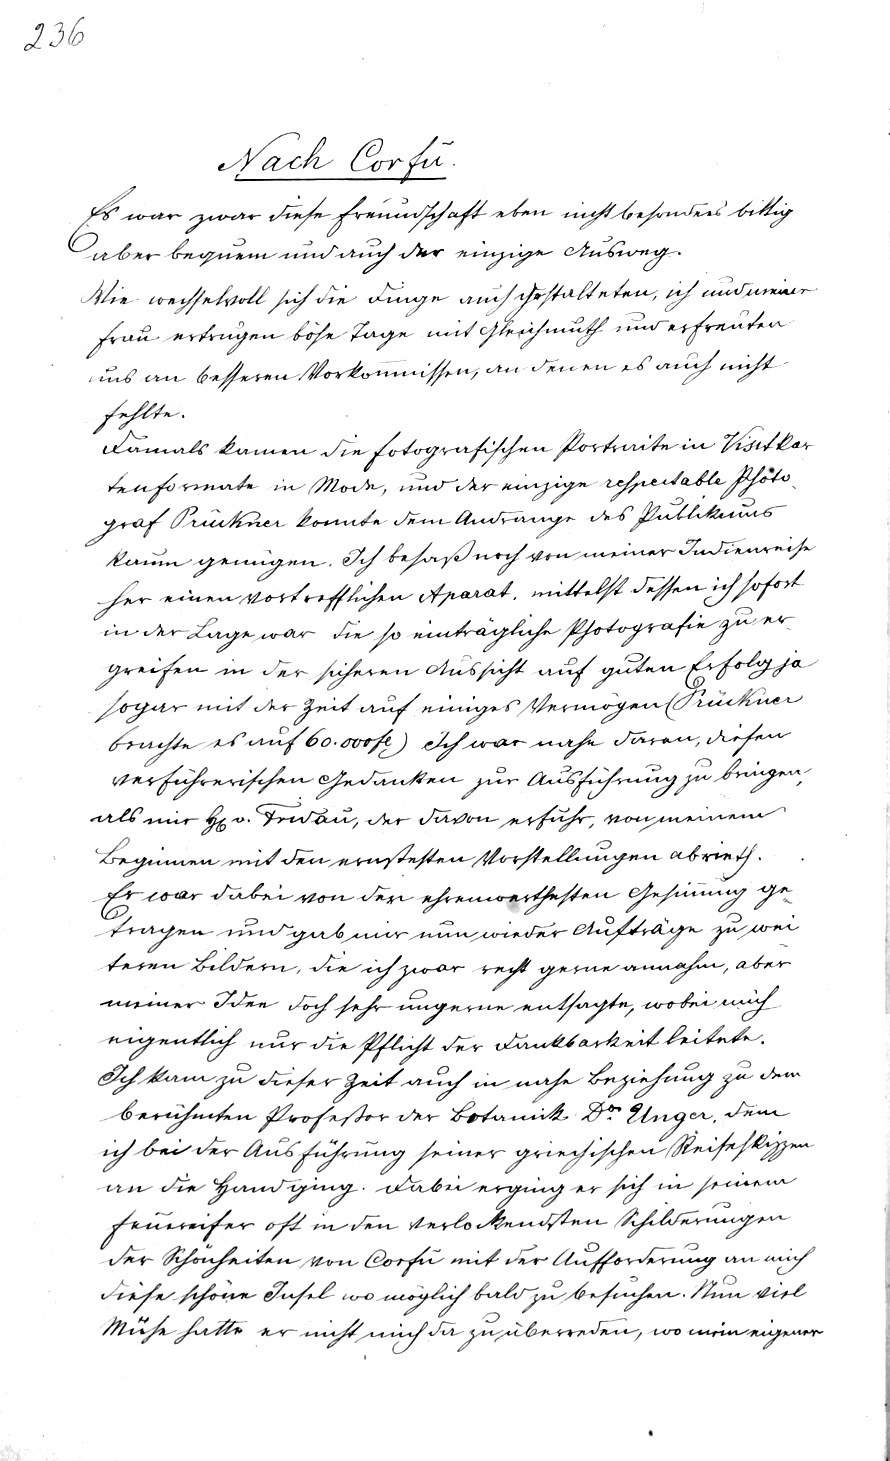 236
Nach Corfu.
Es war zwar diese Freundschaft eben nicht besonders
aber bequem und auch der einzige Ausweg.
Wie wechselvoll sich die Dinge auch gestalteten, ich und meine
Frau ertrugen böse Tage mit Gleichmuth und erfreuten
uns an besseren Vorkommnissen, an denen es auch nicht
fehlte.
Damals kamen die fotografischen Portraite in Visitkar
tenformate in Mode, und der einzige respectable Photo-
graf Prückner konnte dem Andrange des Publikums
kaum genügen. Ich besaß noch von meiner Indienreise
her einen vortrefflichen Aparat, mittelst dessen ich sofort
in der Lage war die so einträgliche Photografie zu er-
greifen in der sicheren Aussicht auf guten Erfolg ja
sogar mit der Zeit auf einiges Vermögen (Prückner
brachte es auf 60.000 fl) Ich war nahe daran, diesen
verführerischen Gedanken zur Ausführung zu bringen,
als mir H. v. Fridau, der davon erfuhr, von meinem
Beginnen mit den ernstesten Vorstellungen abrieth.
Er war dabei von der ehrenwerthesten Gesinnung ge-
tragen und gab mir nun wieder Aufträge zu wei
teren Bildern, die ich zwar recht gerne annahm, aber
meiner Idee doch sehr ungerne entsagte, wobei mich
eigentlich nur die Pflicht der Dankbarkeit leitete.
Ich kam zu dieser Zeit auch in nahe Beziehung zu dem
berühmten Profeßor der Botanik Dor. Unger, dem
ich bei der Ausführung seiner griechischen Reiseskizzen
an die Hand ging. Dabei erging er sich in seinem
Feuereifer oft in den verlockendsten Schilderungen
der Schönheiten von Corfu mit der Aufforderung an mich
diese schöne Insel wo möglich bald zu besuchen. Nun viel
Mühe hatte er nicht mich da zu überreden, wo mein eigener